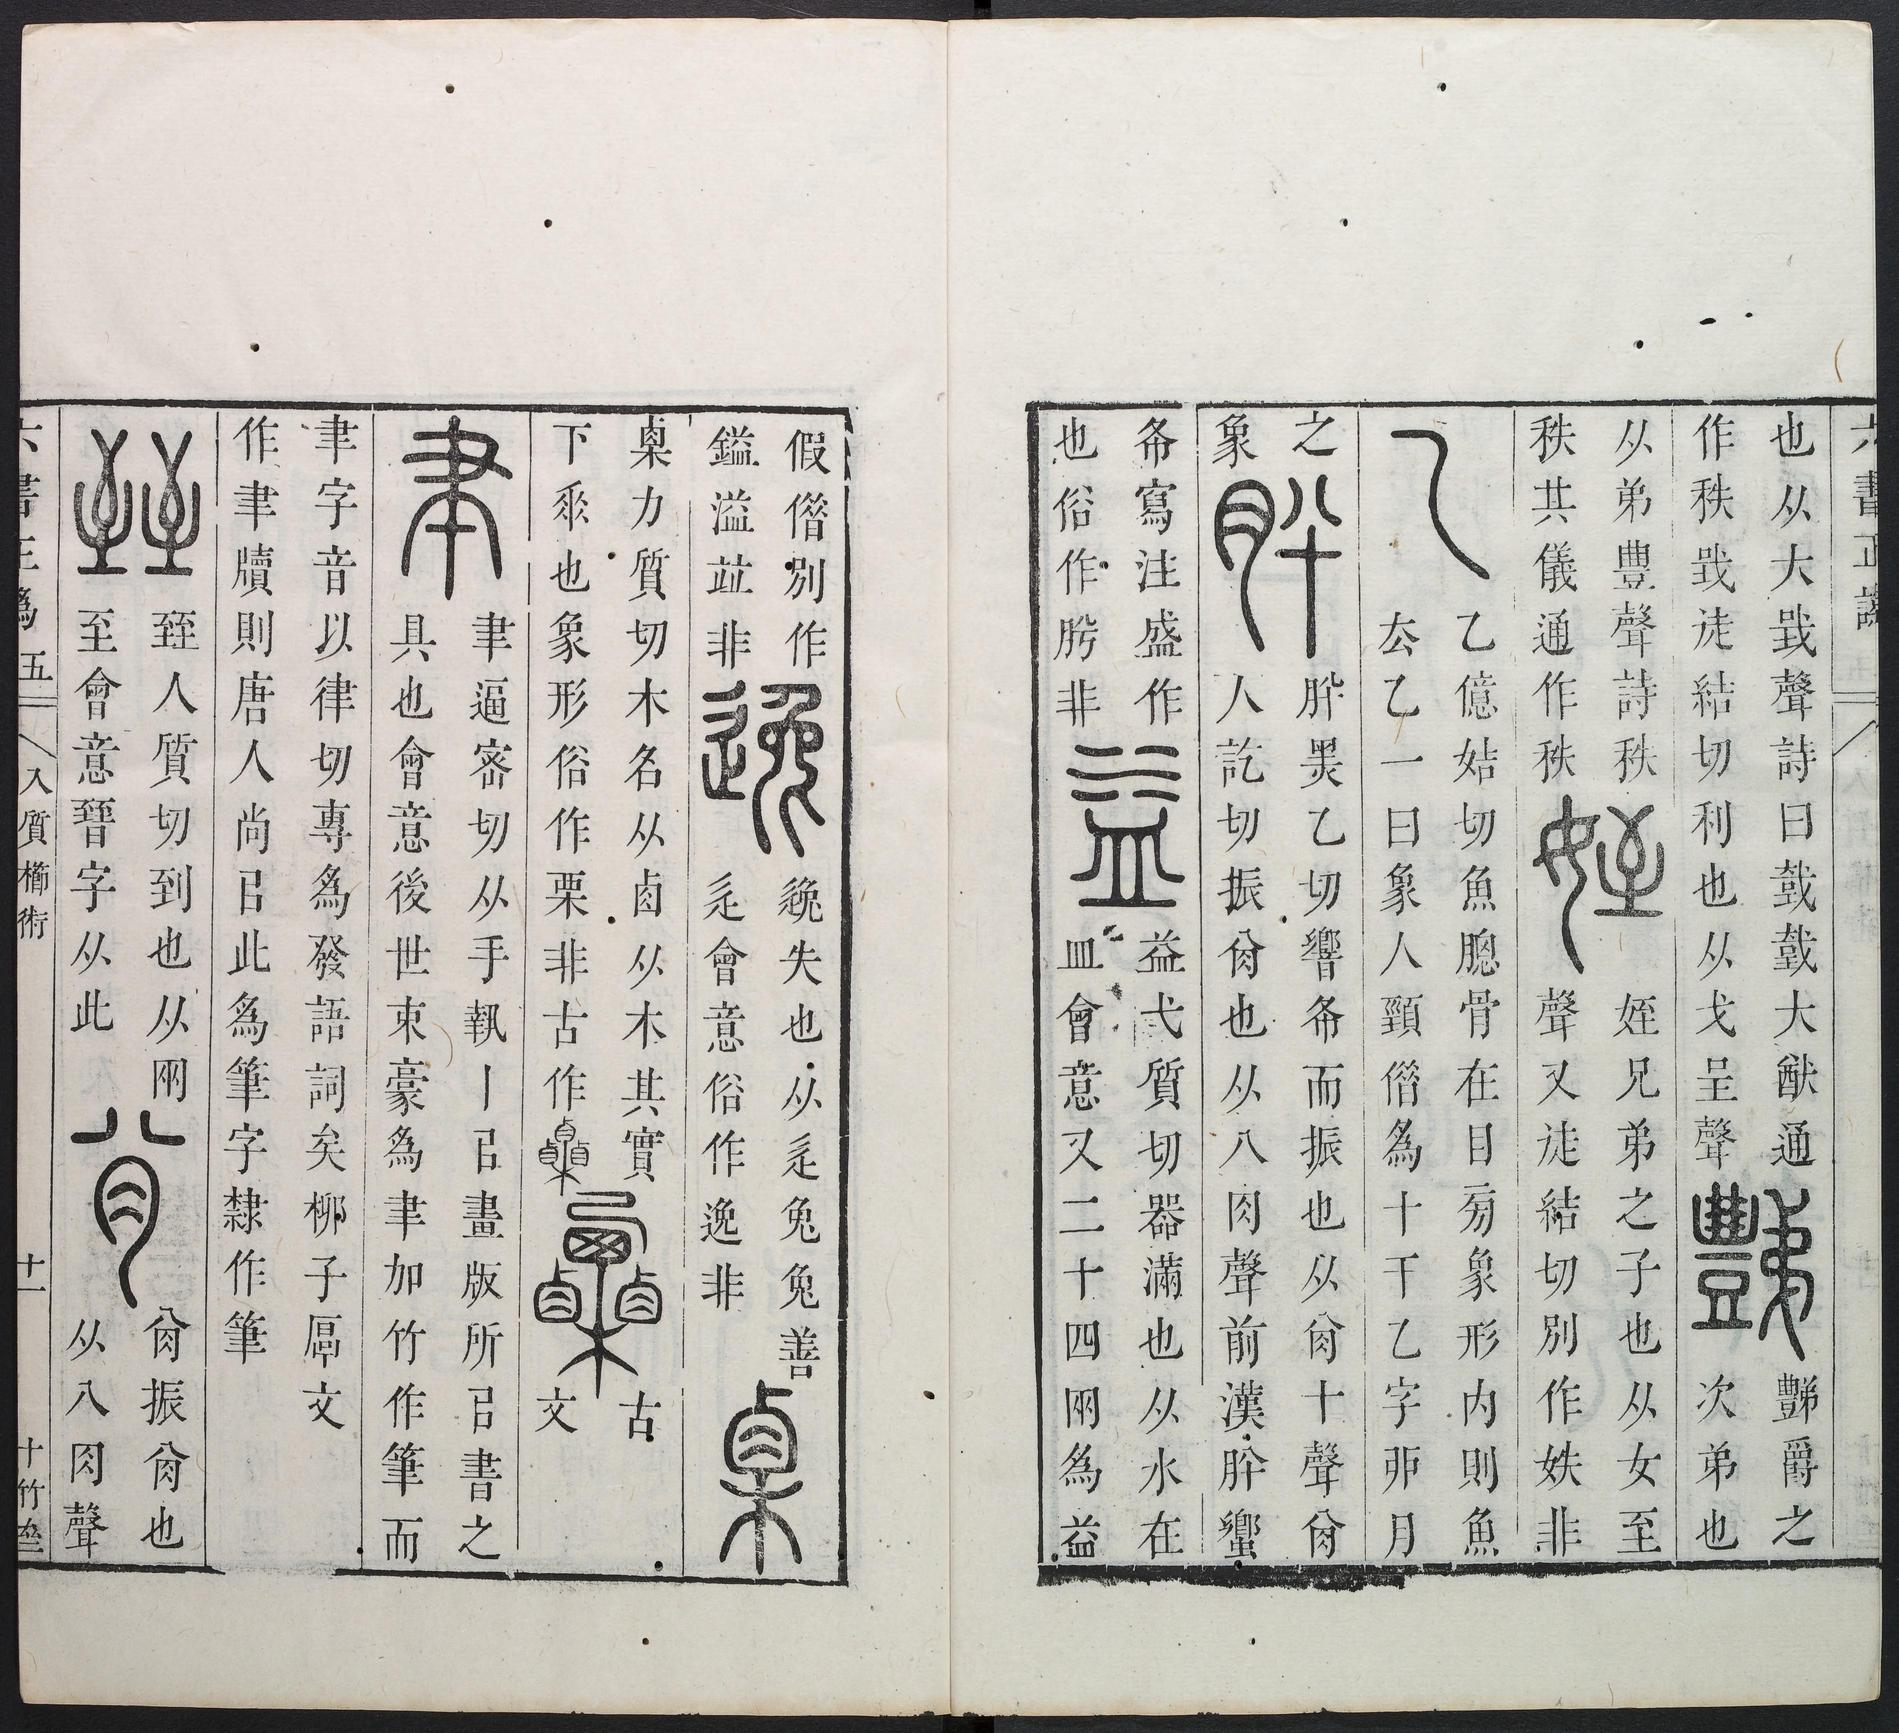 六書正譌
也从大𢧜聲詩曰𢧤𢧤大猷通
作秩𢧜徒結切利也从戈呈聲
豑
豑爵之
次弟也
从弟豊聲詩秩
秩其儀通作秩
姪
姪兄弟之子也从女至
聲又徒結切別作妷非
乙
乙億姞切魚腮骨在目㫄象形內則魚
去乙一曰象人頸借為十干乙字丣月
之
象
肸
肸黑乙切響布而振也从㕣十聲㕣
人訖切振㕣也从八肉聲前漢肸蠁
布寫注盛作
也俗作肹非
益
益弋質切器滿也从水在
皿會意又二十四兩為益
假借別作
鎰溢竝非
逸
逸失也从辵兔兔善
辵會意俗作逸非
㮚
㮚力質切木名从卤从木其實
下𠂹也象形俗作栗非古作
古
文
聿
聿逼密切从手執丨㠯畫版所㠯書之
具也會意後世束豪為聿加竹作筆而
聿字音以律切專為發語詞矣栁子厚文
作聿牘則唐人尚㠯此為筆字隸作筆
臸
臸人質切到也从兩
至會意㬜字从此
㕣
㕣振㕣也
从八肉聲
六書正譌 五
入質櫛術
十一
十竹